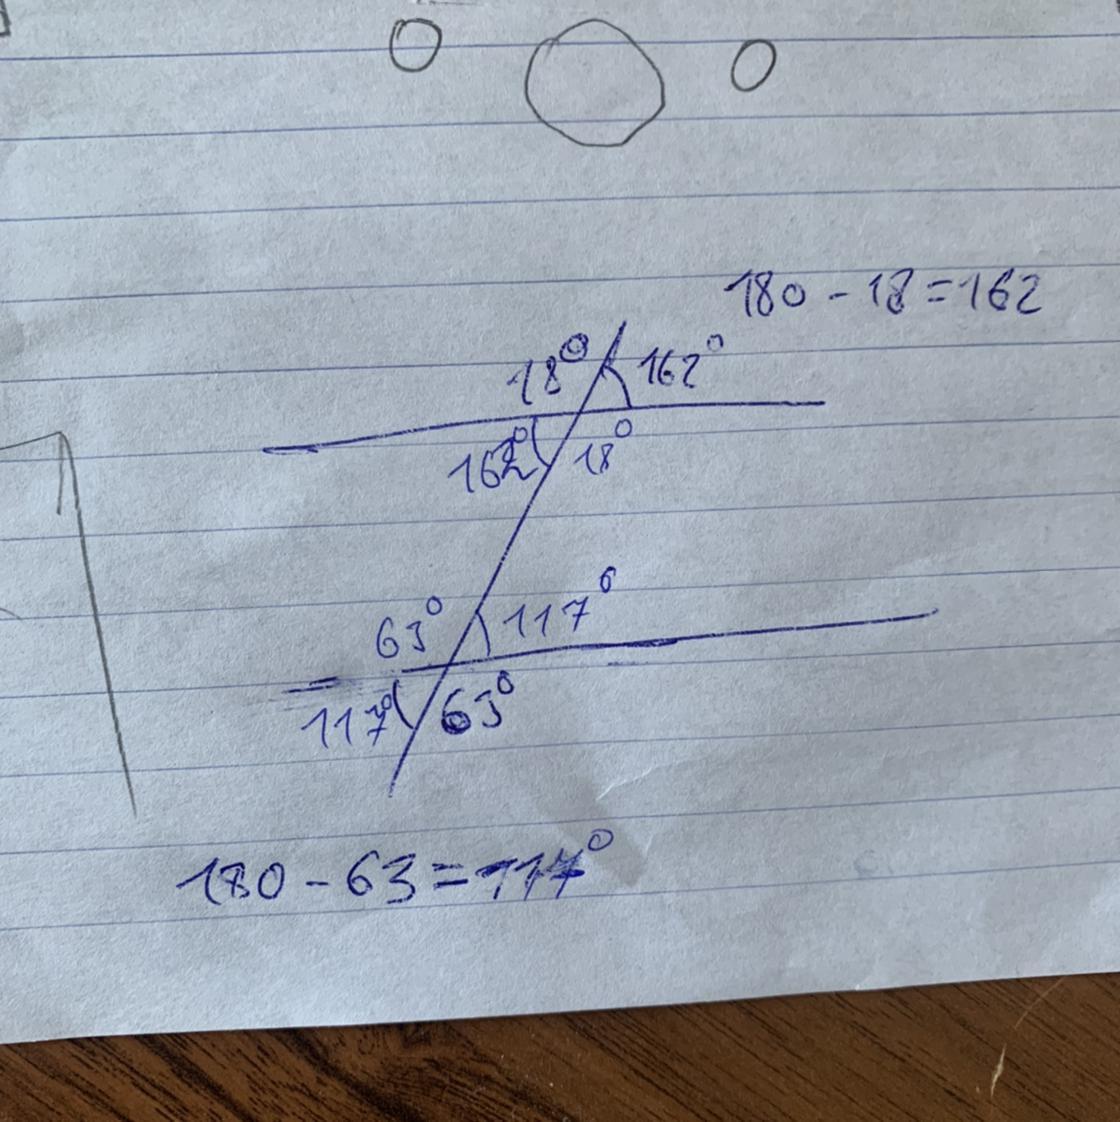 180 - 18 = 162
18° 162°
162° 18°
63° 117°
117° 63°
180 - 63 = 117°